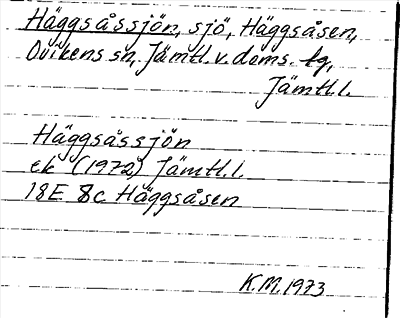 Häggsåssjön, sjö, Häggsåsen,
Ovikens sn, Jämtl. v. doms. tg,
Jämtl. l.
Häggsåssjön
ek (1972) Jämtl. l.
18E 8c Häggsåsen
K.M. 1973